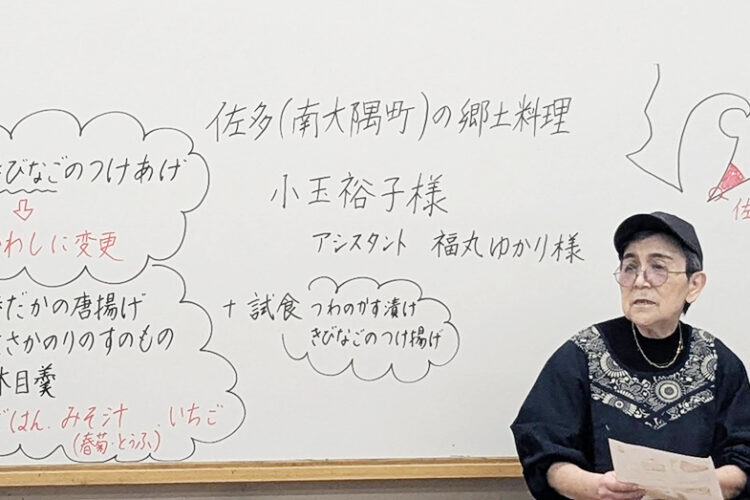 佐多(南大隅町)の郷土料理
小玉裕子様
アシスタント 福丸ゆかり様
びなごのつけあげ
⇩
わしに変更
だかの唐揚げ
さかのりのすのもの
木目羹
ごはん.みそ汁 .いちご
(春菊・とうふ)
+試食 つわのかす漬け
きびなごのつけ揚げ
佐